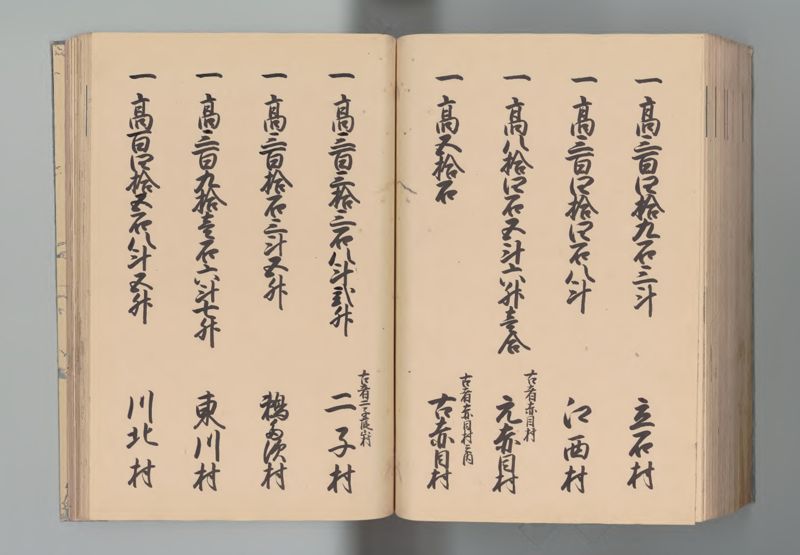 一 高三百四拾九石三斗 立石村
一 高三百四拾四石八斗 江西村
一 高八拾四石五斗六升壱合 古者赤目村 元赤目村
一 高五拾石 古者赤目村之内 古赤目村
一 高三百三拾三石八斗弐升 古者二子 村 二子村
一 高三百拾石三斗五升 村
一 高三百九拾壱石六斗七升 東川村
一 高百四拾五石八斗五升 川北村